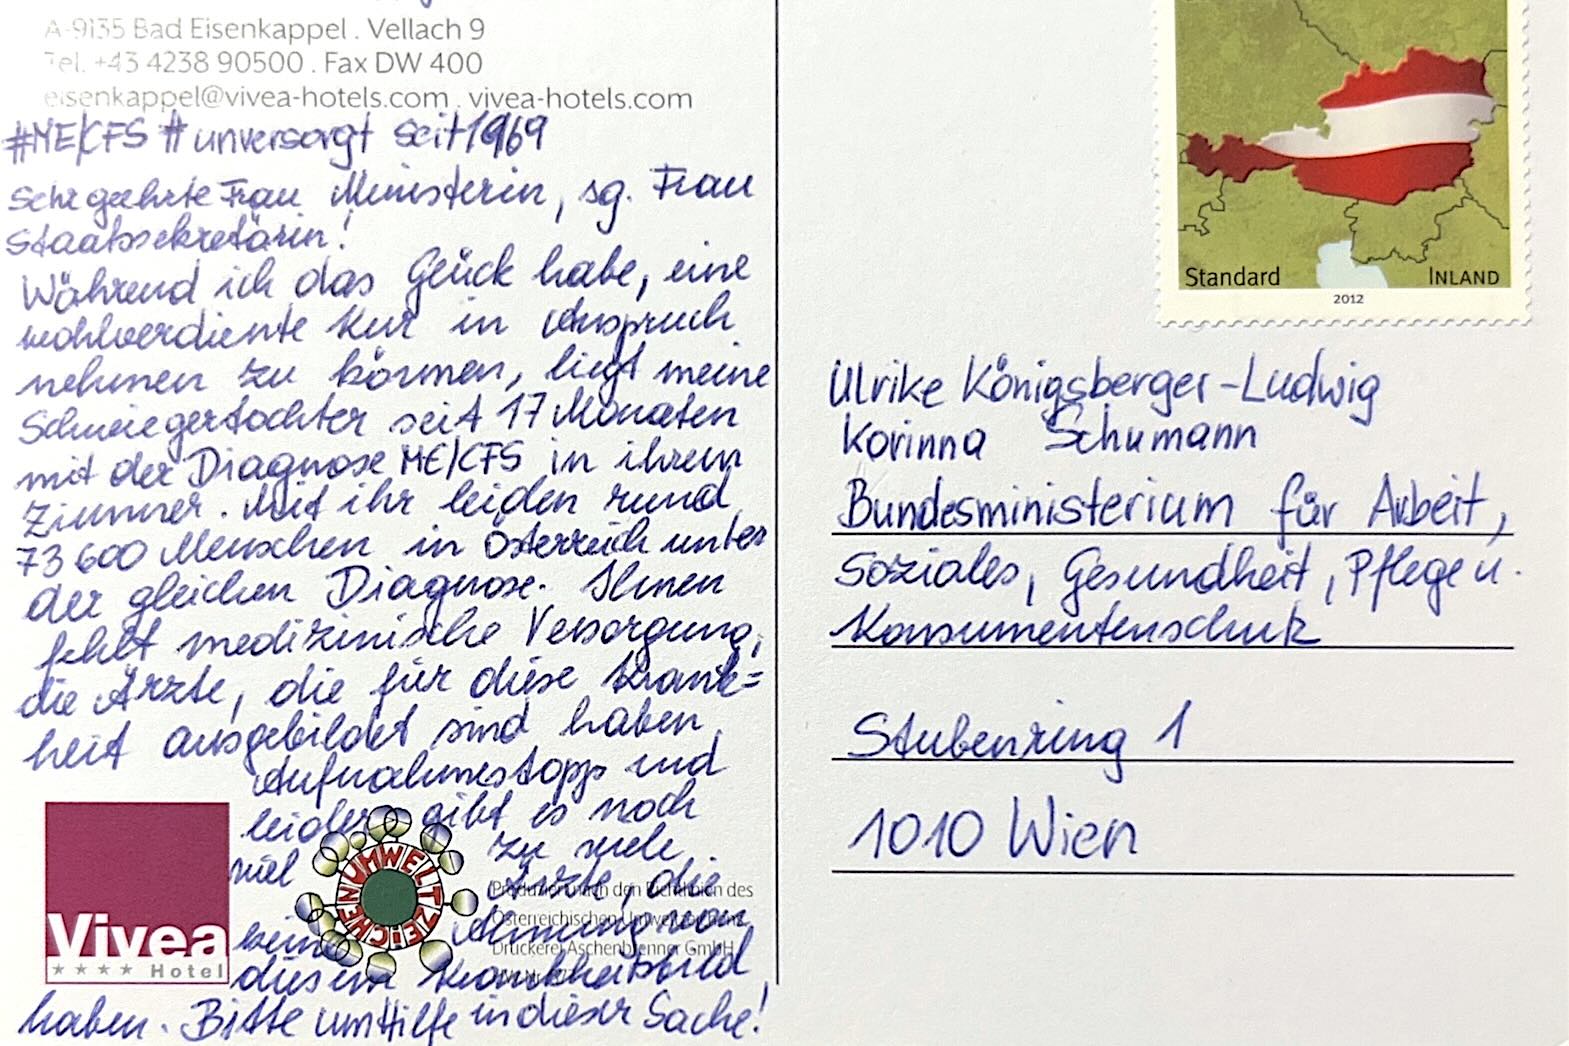 A-9135 Bad Eisenkappel . Vellach 9
Tel. +43 4238 90500 . Fax DW 400
eisenkappel@vivea-hotels.com . vivea-hotels.com
#ME/CFS #unversorgt seit 1969
Sehr geehrte Frau Ministerin, sg. Frau
Staatssekretärin!
Während ich das Glück habe, eine
wohlverdiente Kur in Anspruch
nehmen zu können, liegt meine
Schwiegertochter seit 17 Monaten
mit der Diagnose ME/CFS in ihrem
Zimmer. Mit ihr leiden rund
73 600 Menschen in Österreich unter
der gleichen Diagnose. Ihnen
fehlt medizinische Versorgung,
die Ärzte, die für diese Krank=
heit ausgebildet sind haben
Aufnahmestopp und
leider gibt es noch
viel zu viele
Ärzte, die
keine Ahnung von
diesem Krankheitsbild
haben. Bitte um Hilfe in dieser Sache!
Vivea
Hotel
UMWELTZEICHEN
Produziert nach den Richtlinien des
Österreichischen Umweltzeichens
Druckerei Aschenbrenner GmbH
Standard
INLAND
2012
Ulrike Königsberger-Ludwig
Korinna Schumann
Bundesministerium für Arbeit,
Soziales, Gesundheit, Pflege u.
Konsumentenschutz
Stubenring 1
1010 Wien